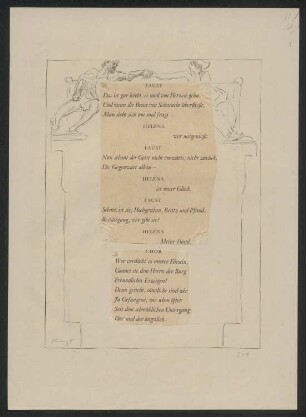 FAUST
Das ist gar leicht, es muß von Herzen gehn.
Und wenn die Brust von Sehnsucht überfließt,
Man sieht sich um und fragt
HELENA
wer mitgenießt.
FAUST
Nun schaut der Geist nicht vorwärts, nicht zurück,
Die Gegenwart allein —
HELENA
ist unser Glück.
FAUST
Schatz ist sie, Hochgewinn, Besitz und Pfand;
Bestätigung, wer gibt sie?
HELENA
Meine Hand.
CHOR
Wer verdächt' es unsrer Fürstin,
Gönnet sie dem Herrn der Burg
Freundliches Erzeigen?
Denn gesteht, sämtliche sind wir
Ja Gefangene, wie schon öfter
Seit dem schmählichen Untergang